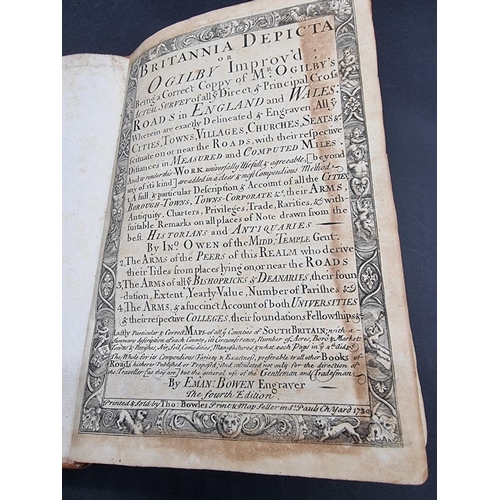 BRITANNIA DEPICTA
OR
OGILBY Improv'd;
Being a Correct Coppy of Mr. OGILBY'S
ACTUAL SURVEY of all ye Direct & Principal Cross
ROADS in ENGLAND and WALES:
Wherein are exactly Delineated & Engraven, All ye
CITIES, TOWNS, VILLAGES, CHURCHES, SEATS &c.
scituate on or near the ROADS, with their respective
Distances in MEASURED and COMPUTED MILES.
And to render this WORK universally Usefull & agreeable, [beyond
any of its kind] are added in a clear & most Compendious Method
1. A full & particular Description & Account of all the CITIES,
BOROUGH-TOWNS, TOWNS-CORPORATE &c. their ARMS,
Antiquity, Charters, Privileges, Trade, Rarities, &c. with
suitable Remarks on all places of Note drawn from the
best HISTORIANS and ANTIQUARIES
By Ino. OWEN of the MIDD: TEMPLE Gent:
2. The ARMS of the PEERS of this REALM who derive
their Titles from places lying on, or near the ROADS
3. The ARMS of all ye BISHOPRICKS & DEANARIES, their foun
dation, Extent, Yearly Value, Number of Parishes &c.
4. The ARMS, & a succinct Account of both UNIVERSITIES
& their respective COLLEGES, their foundations, Fellowships &c.
Lastly Particular & Correct MAPS of all ye Counties of SOUTH BRITAIN; with a
Summary description of each County, its Circumference, Number of Acres, Boro' & Market
Towns & Parishes, Air, Soil, Comodities, Manufactures, & what each Pays in ye 2s. Aid &c.
The Whole for its Compendious Variety & Exactness, preferable to all other Books of
Roads hitherto Published or Proposed; And calculated not only for the direction of
the Traveller [as they are] but the general use of the Gentleman and Tradesman.
By EMAN: BOWEN Engraver
The fourth Edition
Printed & Sold by Tho: Bowles Print & Map Seller in St. Pauls Ch. Yard 1730